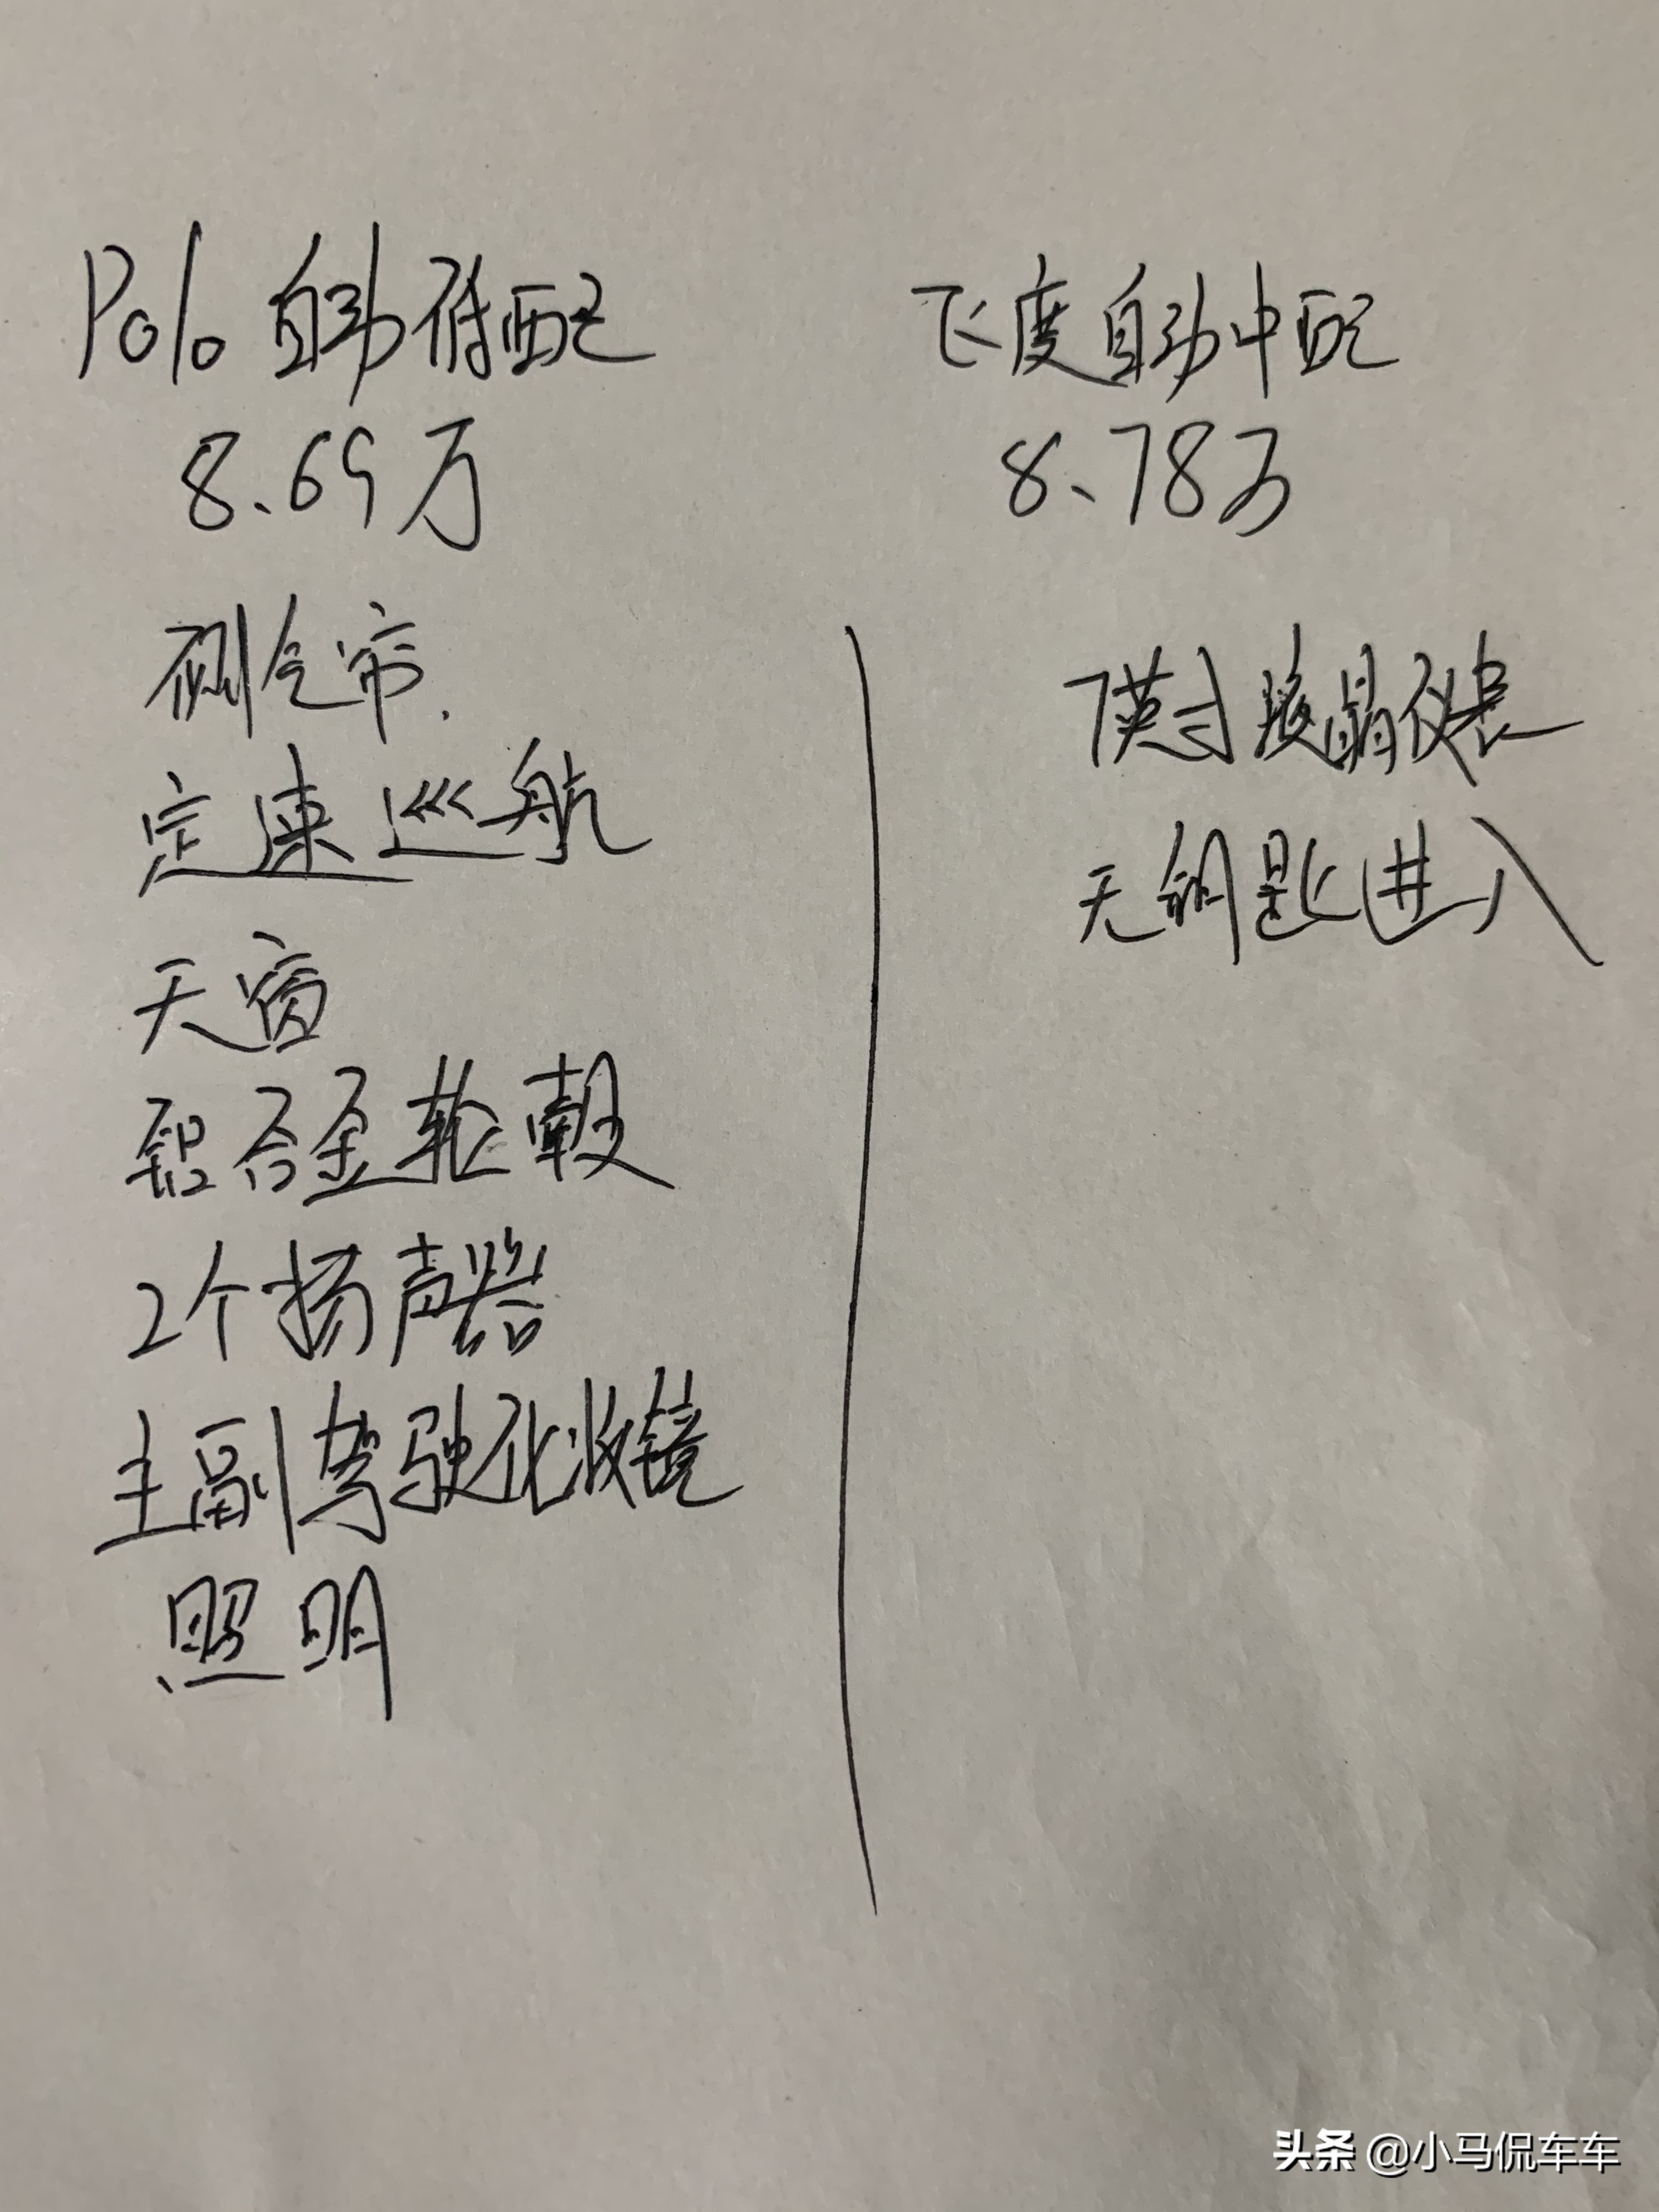 Polo 自动低配
8.69万
侧气帘.
定速巡航
天窗
铝合金轮毂
2个扬声器
主副驾驶化妆镜
照明
飞度自动中配
8.78万
7英寸液晶仪表
无钥匙进入
头条 @小马侃车车